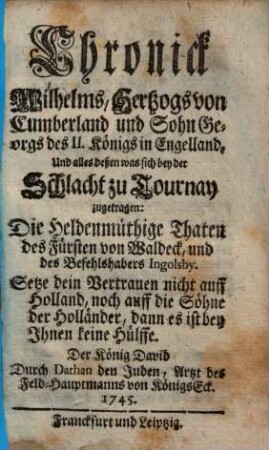 Chronick
Wilhelms, Hertzogs von
Cumberland und Sohn Ge-
orgs des II. Königs in Engelland,
Und alles deßen was sich bey der
Schlacht zu Tournay
zugetragen:
Die Heldenmüthige Thaten
des Fürsten von Waldeck, und
des Befehlshabers Ingolsby.
Setze dein Vertrauen nicht auff
Holland, noch auff die Söhne
der Holländer, dann es ist bey
Ihnen keine Hülffe.
Der König David
Durch Dathan den Juden, Artzt des
Feld-Hauptmanns von KönigsEck.
1745.
Franckfurt und Leipzig.